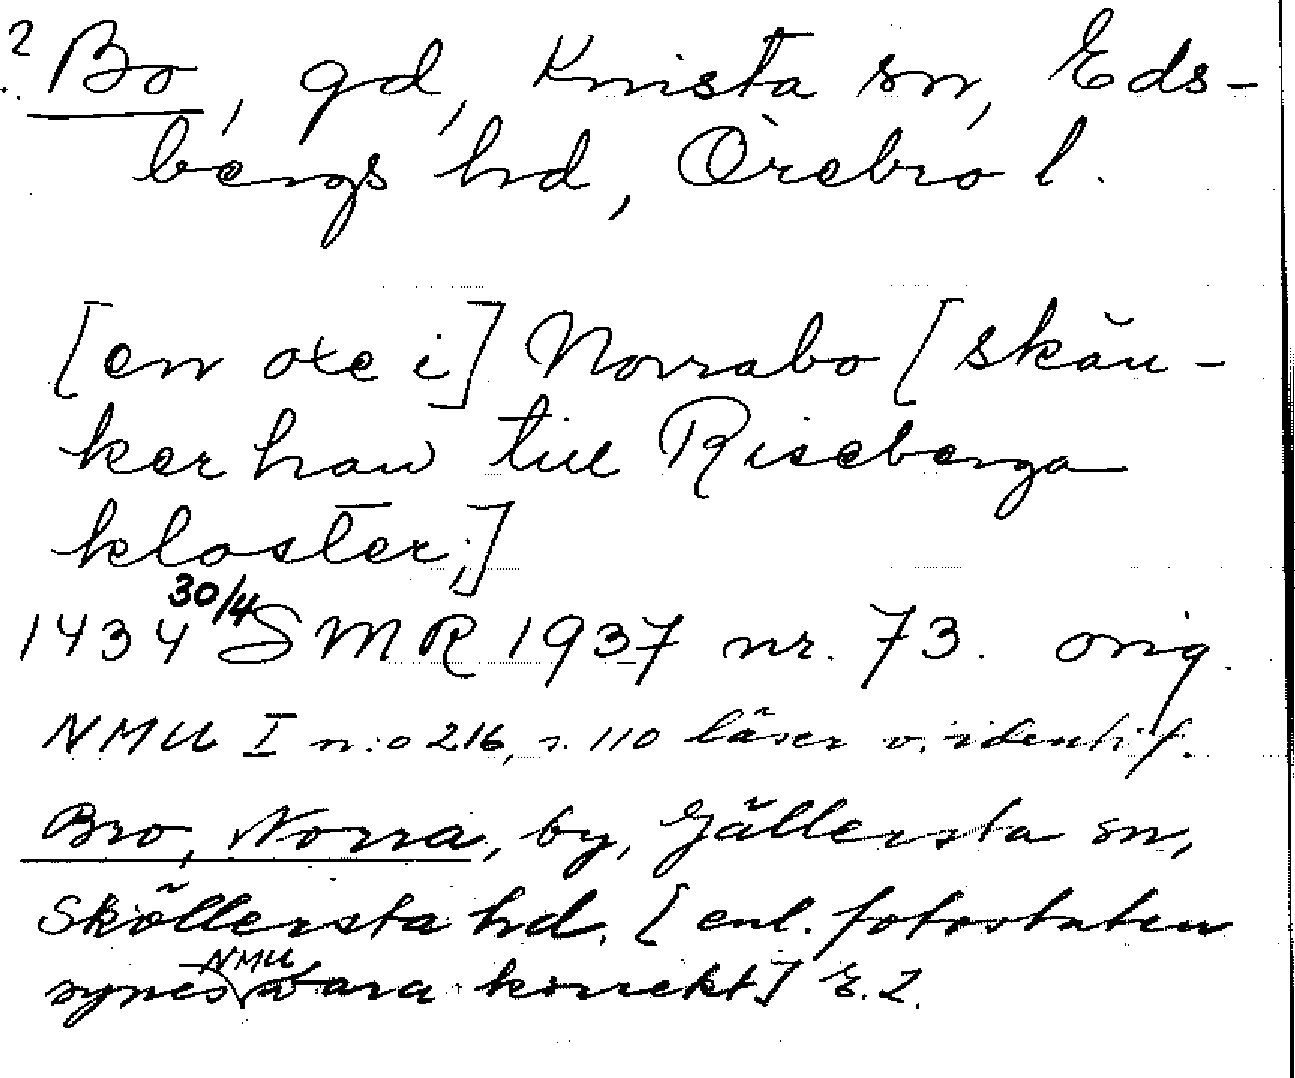 ? Bo, gd, Knista sn, Eds-
bergs hd, Örebro l.
[en oxe i] Norrabo [skän-
ker han till Riseberga
kloster,]
1434 30/4 SMR 1937 nr. 73. orig.
NMU I n:o 216, s. 110 läser o. identif.
Bro, Norra, by, Gällersta sn,
Sköllersta hd. [enl. fotostaten
synes NMU vara korrekt] E.Z.